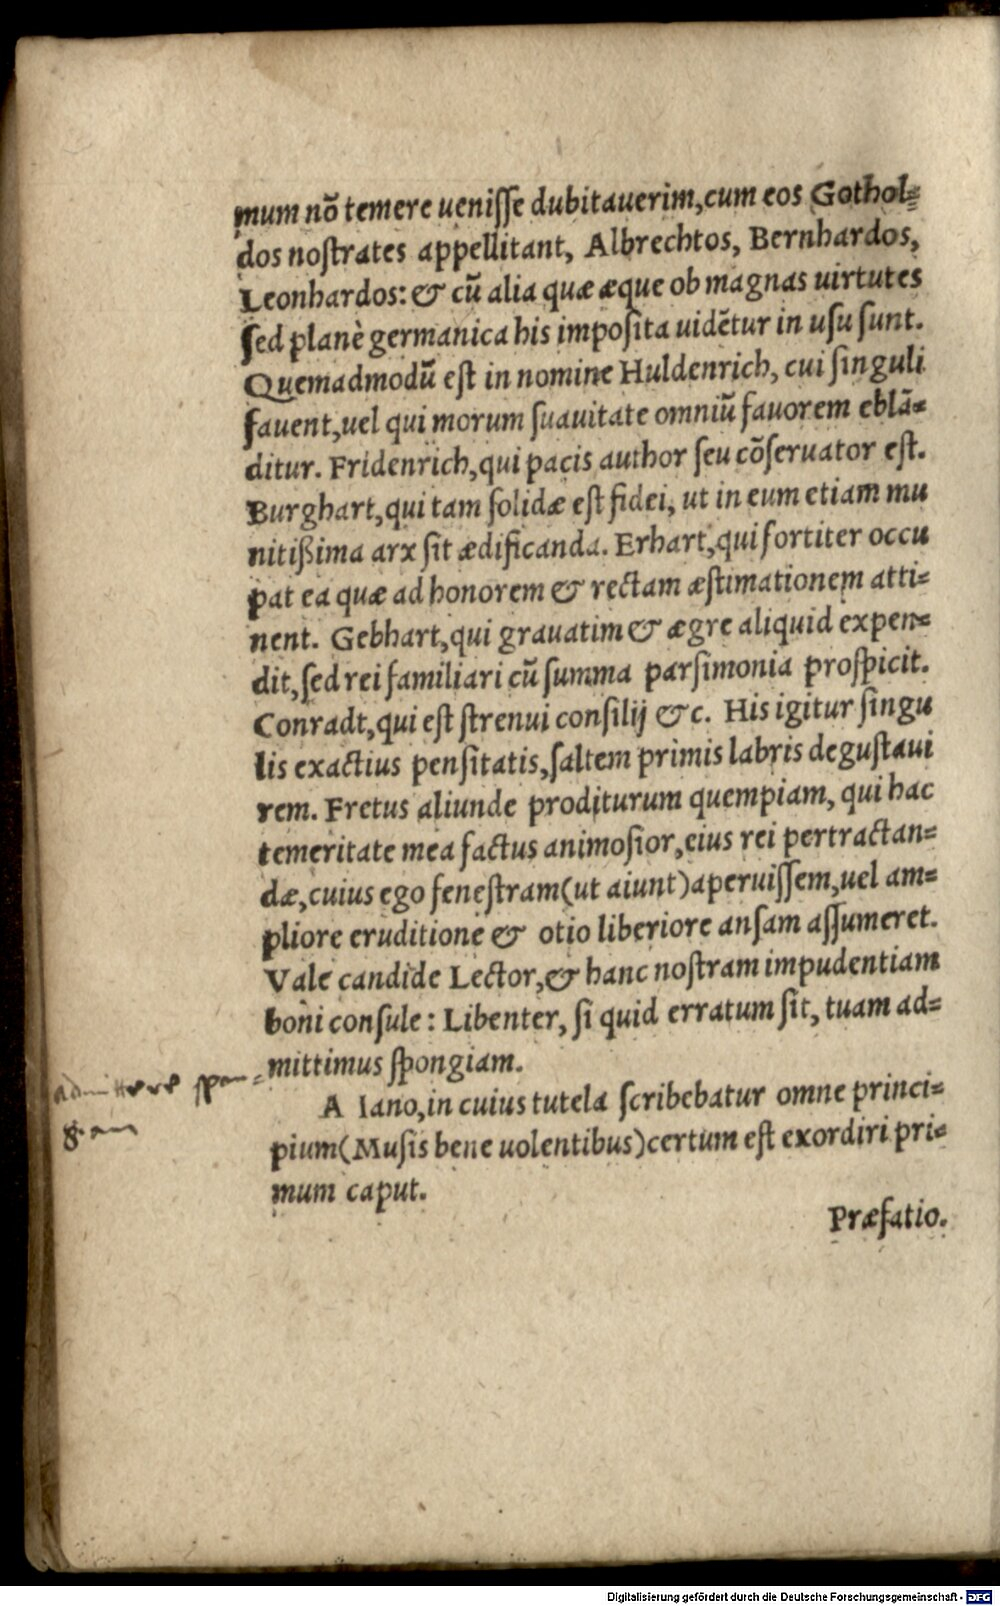 mum nõ temere uenisse dubitauerim, cum eos Gothol=
dos nostrates appellitant, Albrechtos, Bernhardos,
Leonhardos: & cũ alia quæ æque ob magnas uirtutes
sed planè germanica his imposita uidẽtur in usu sunt.
Quemadmodũ est in nomine Huldenrich, cui singuli
fauent, uel qui morum suauitate omniũ fauorem eblã=
ditur. Fridenrich, qui pacis author seu cõseruator est.
Burghart, qui tam solidæ est fidei, ut in eum etiam mu
nitißima arx sit ædificanda. Erhart, qui fortiter occu
pat ea quæ ad honorem & rectam æstimationem atti=
nent. Gebhart, qui grauatim & ægre aliquid expen=
dit, sed rei familiari cũ summa parsimonia prospicit.
Conradt, qui est strenui consilij &c. His igitur singu
lis exactius pensitatis, saltem primis labris degustaui
rem. Fretus aliunde proditurum quempiam, qui hac
temeritate mea factus animosior, eius rei pertractan=
dæ, cuius ego fenestram (ut aiunt) aperuissem, uel am=
pliore eruditione & otio liberiore ansam assumeret.
Vale candide Lector, & hanc nostram impudentiam
boni consule: Libenter, si quid erratum sit, tuam ad=
mittimus spongiam.
admittere spon=
giam
A Iano, in cuius tutela scribebatur omne princi=
pium (Musis bene uolentibus) certum est exordiri pri=
mum caput.
Præfatio.
Digitalisierung gefördert durch die Deutsche Forschungsgemeinschaft - DFG